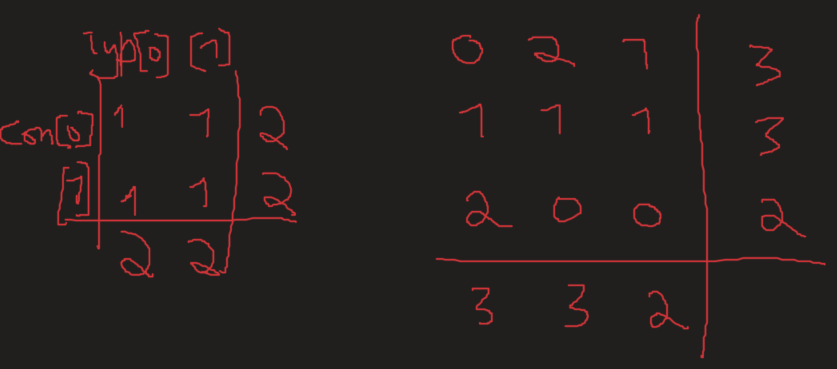 Typ[0] [1]
Con[0] 1 1 2
[1] 1 1 2
2 2
0 2 1 3
1 1 1 3
2 0 0 2
3 3 2